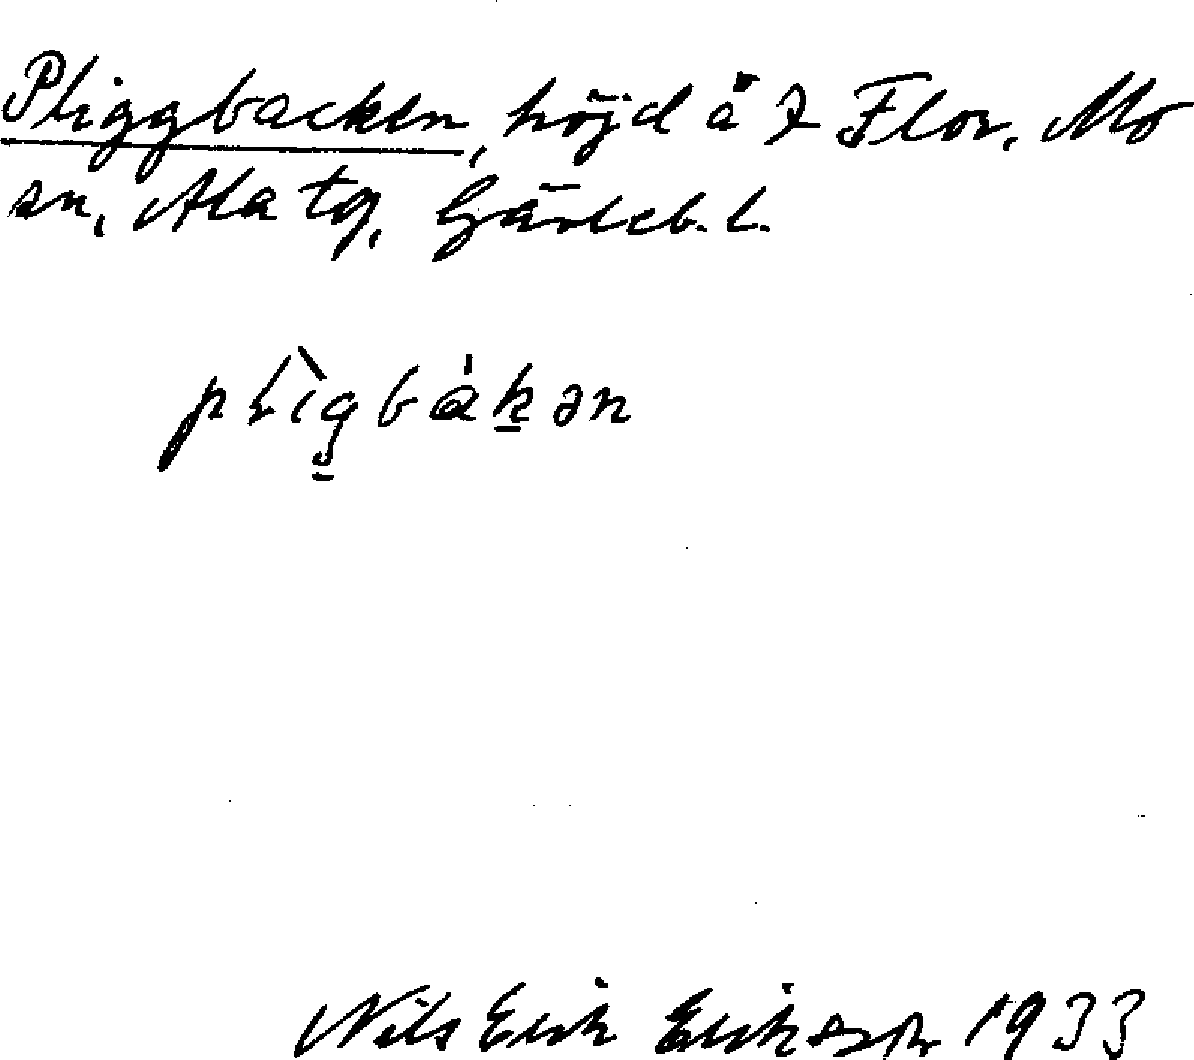 Pliggbacken, höjd å 7 Flor, Mo
sn, Ala tg, Gävleb. l.
plìgbákən
Nils Erik Eriksson 1933